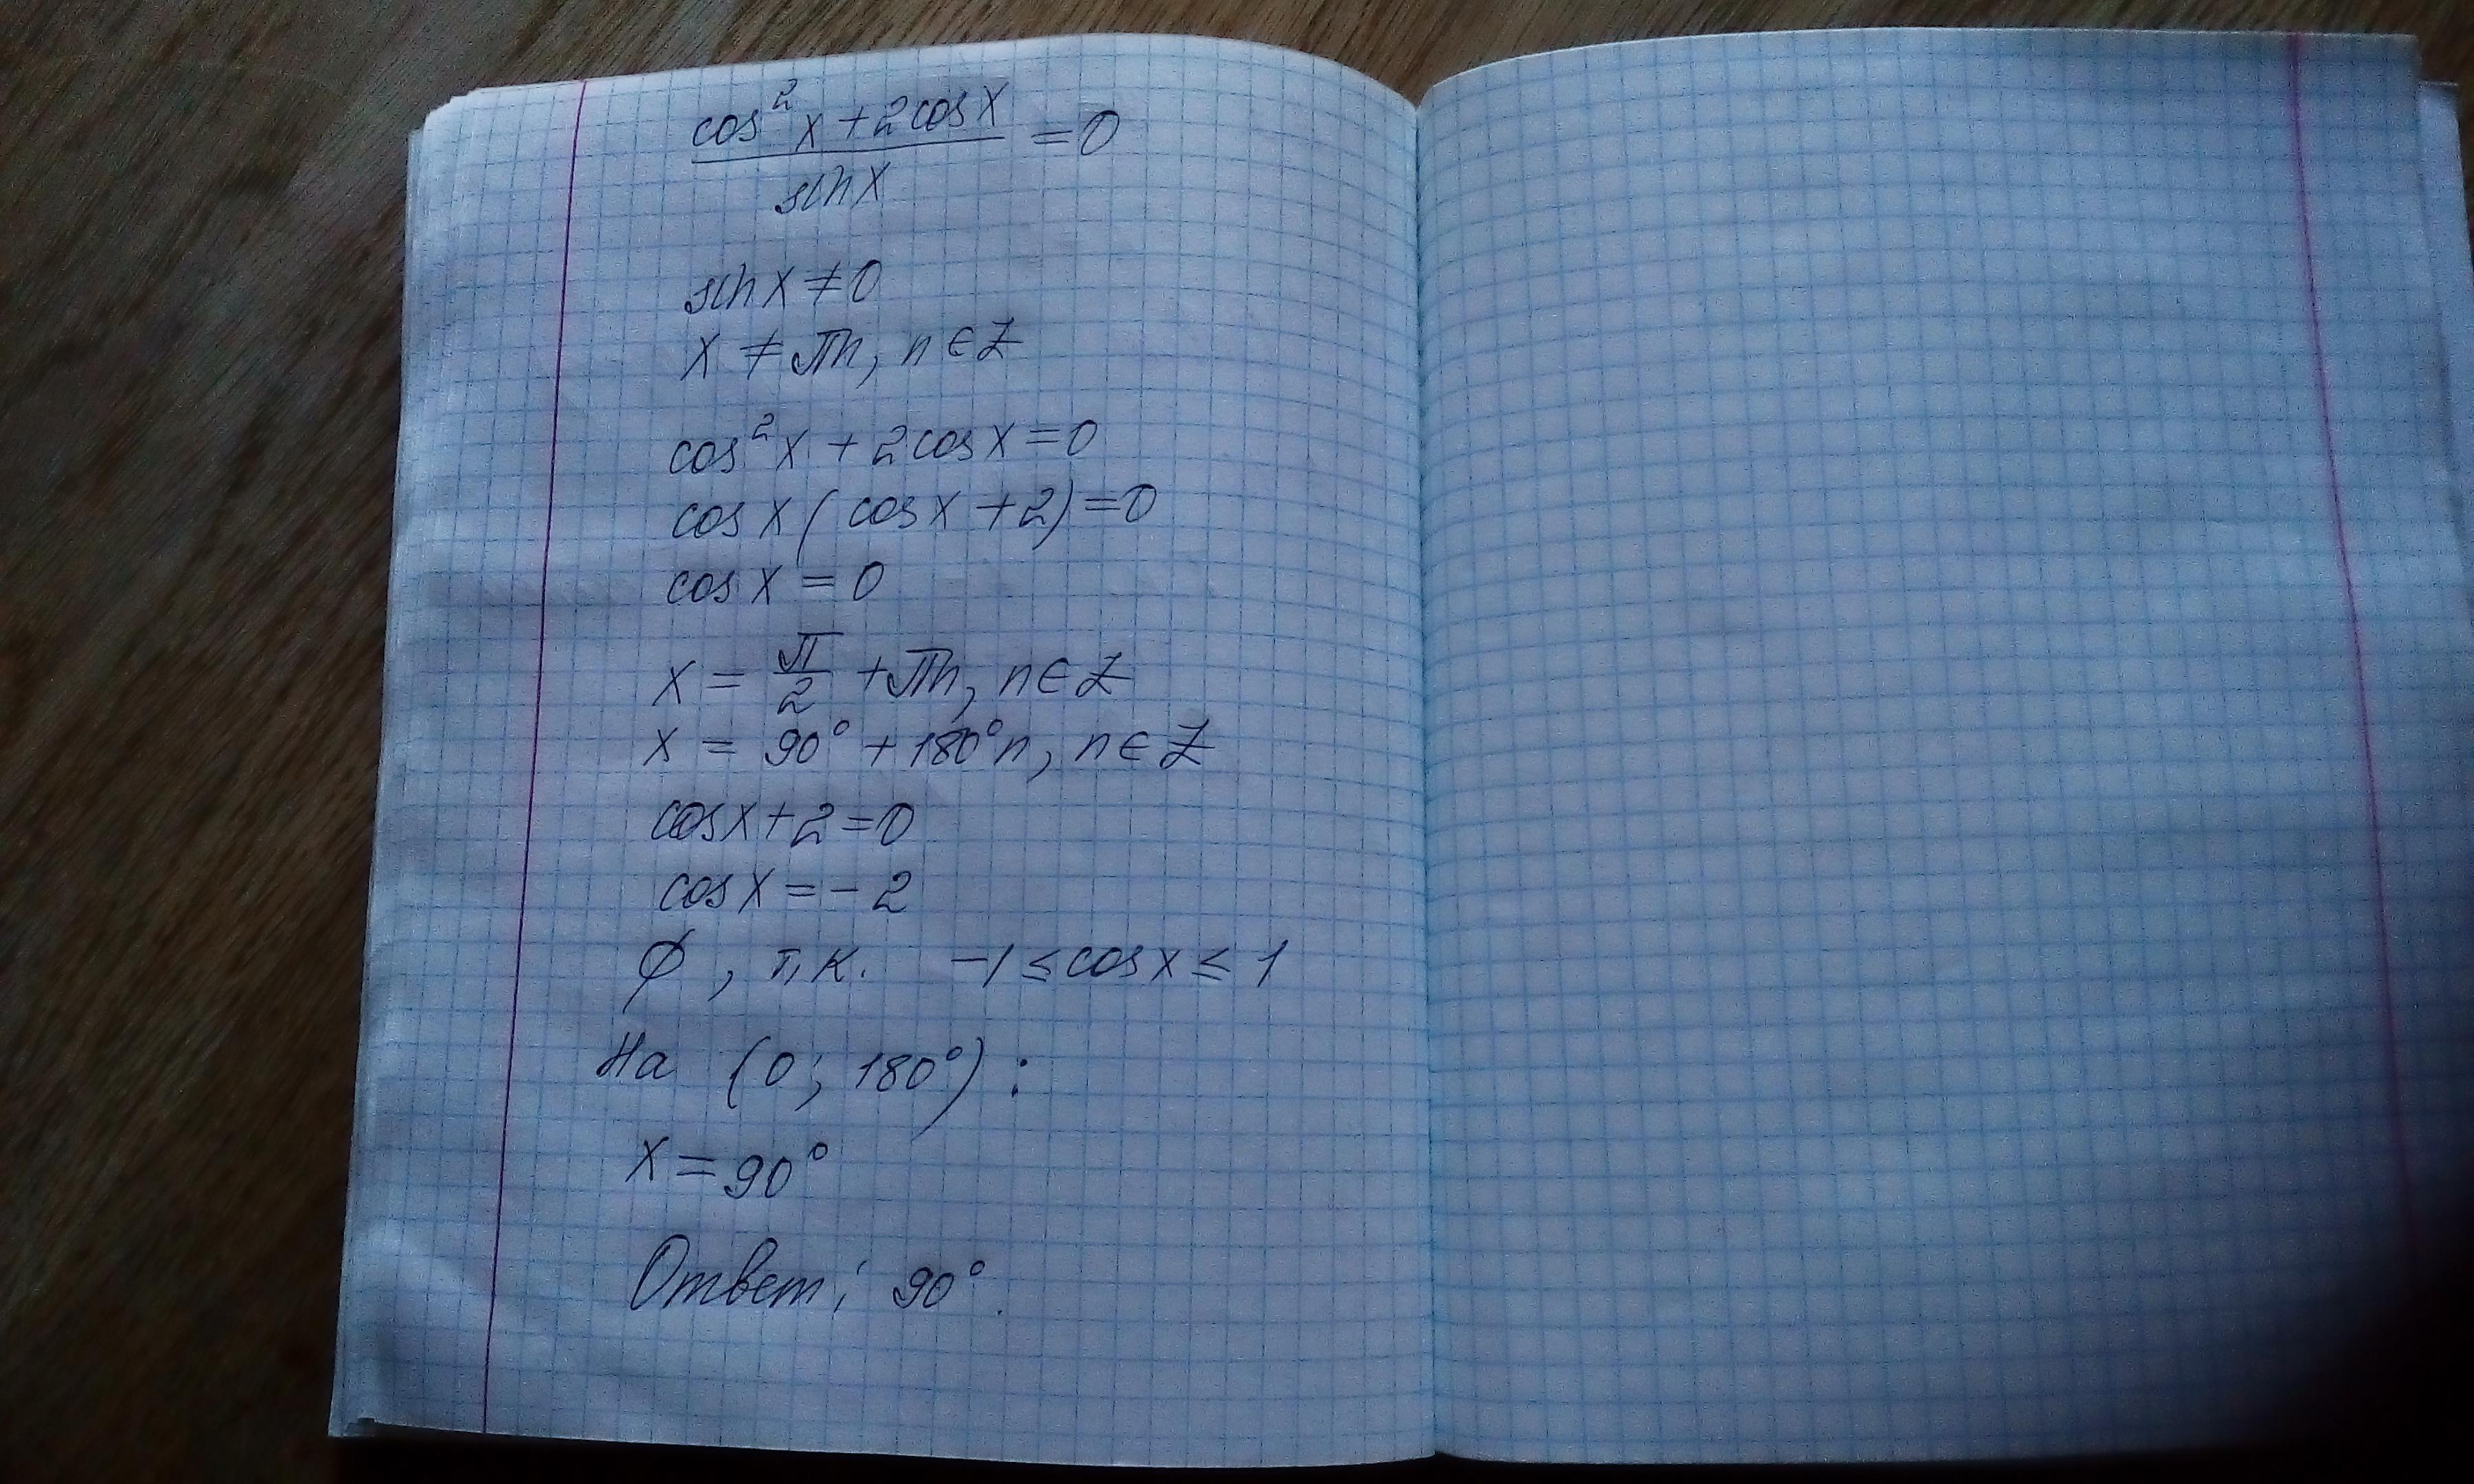 cos²x + 2cosx / sinx = 0
sinx ≠ 0
x ≠ πn, n ∈ Z
cos²x + 2cosx = 0
cosx(cosx + 2) = 0
cosx = 0
x = π/2 + πn, n ∈ Z
x = 90° + 180°n, n ∈ Z
cosx + 2 = 0
cosx = -2
∅, т.к. -1 ≤ cosx ≤ 1
На (0; 180°):
x = 90°
Ответ: 90°.